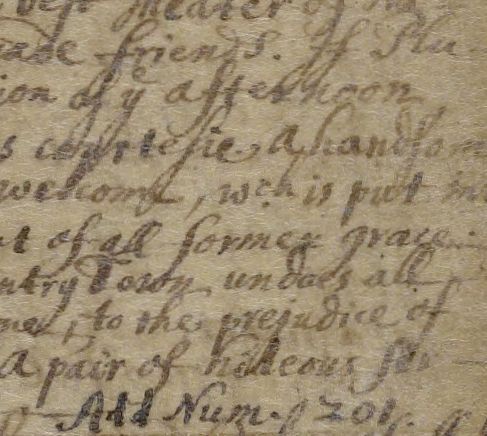 best theater of the
made friends. If Plu-
ion of yͤ afternoon
s courtesie, A handsom
welcome, wᶜʰ is put in
ut of all former grace.
ntry Town, undoes all
, to the prejudice of
a pair of hideous
Add Num. 1201.